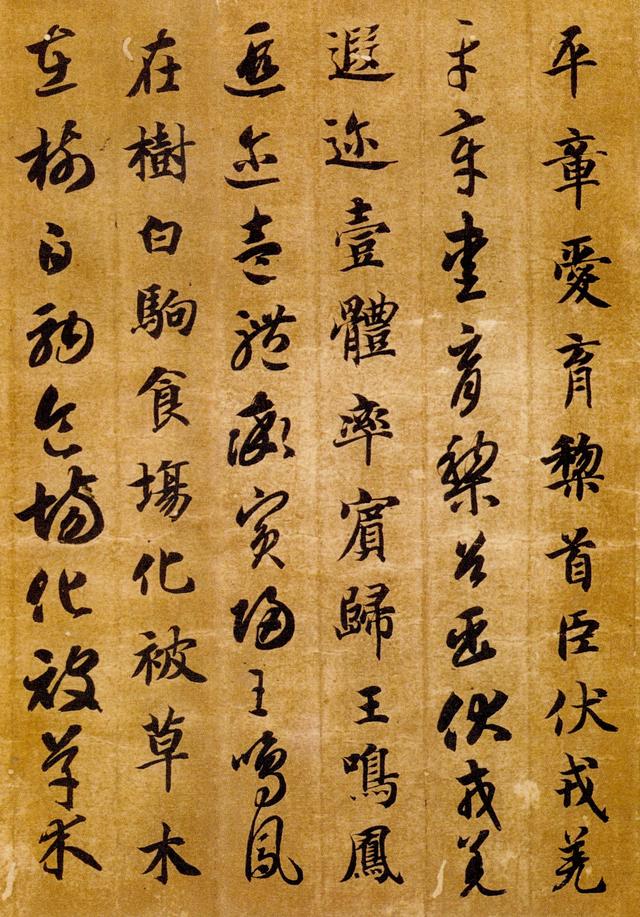 平章愛育黎首臣伏戎羌
平章愛育黎首臣伏戎羌
遐迩壹體率賓歸王鳴鳳
遐迩壹體率賓歸王鳴鳳
在樹白駒食塲化被草木
在樹白駒食塲化被草木